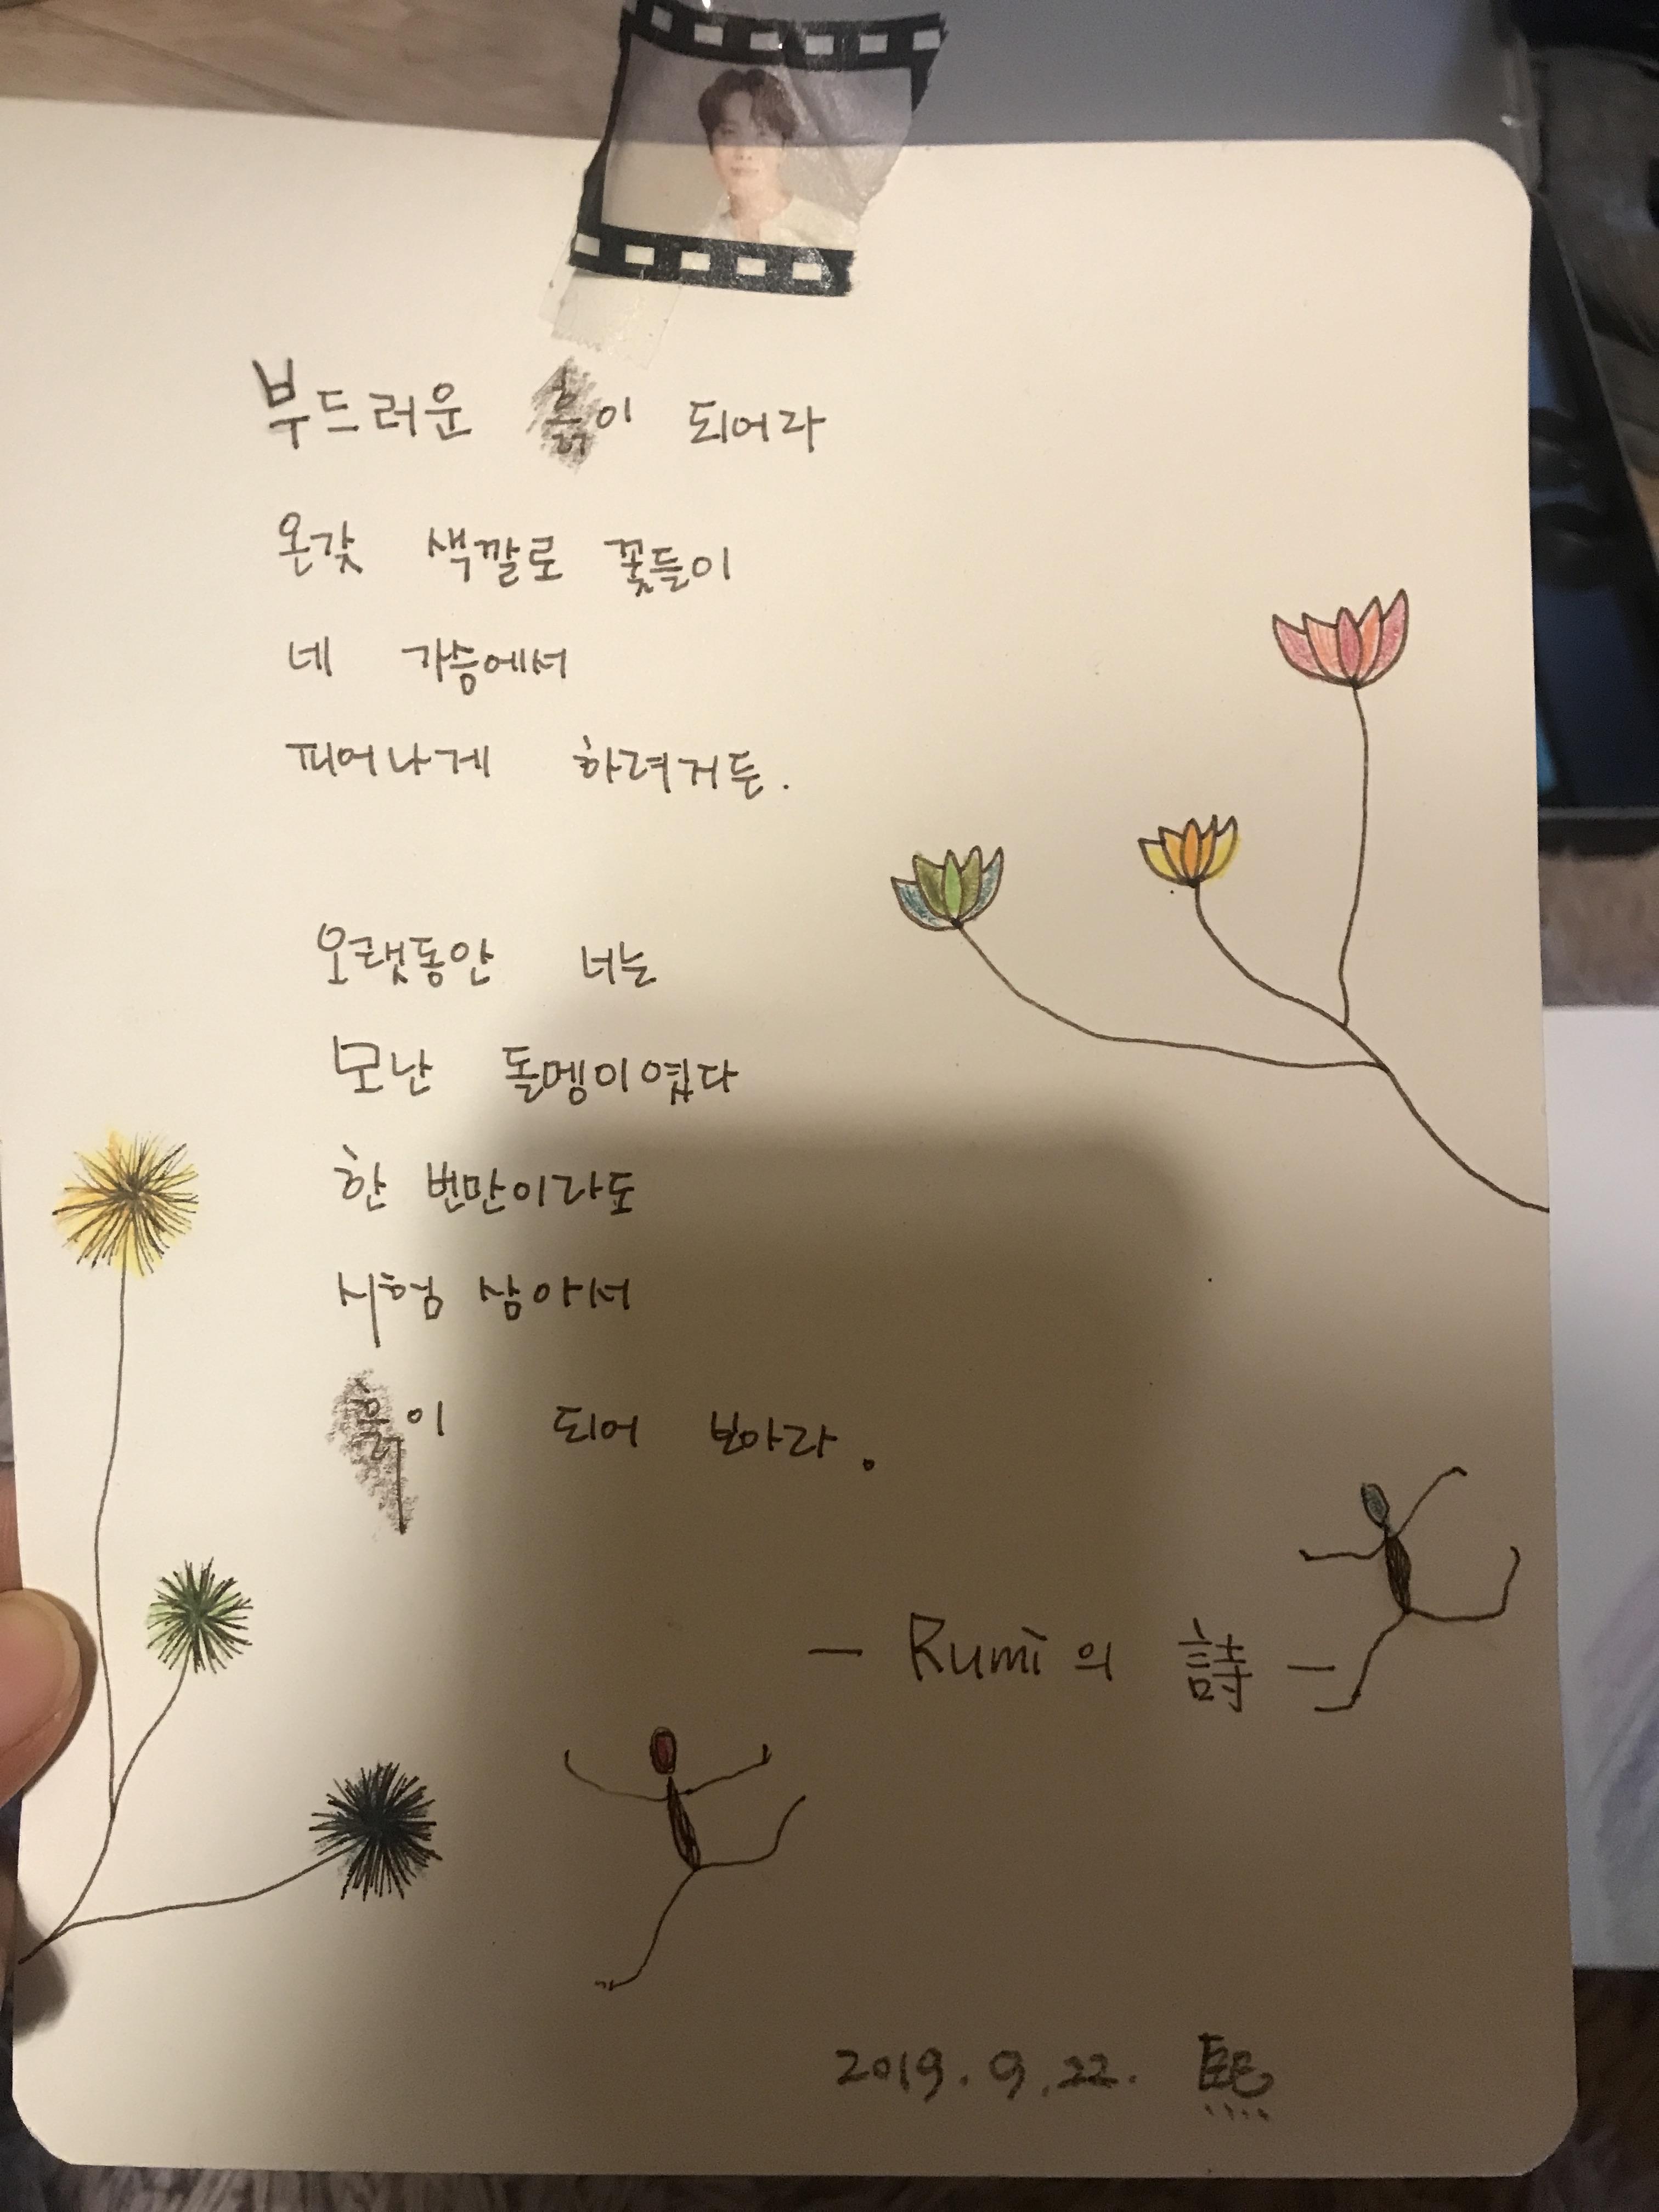 부드러운 흙이 되어라
온갖 색깔로 꽃들이
네 가슴에서
피어나게 하려거든.
오랫동안 너는
모난 돌멩이였다
한 번만이라도
시험 삼아서
흙이 되어 보아라.
- Rumi의 詩 -
2019. 9. 22. 熙